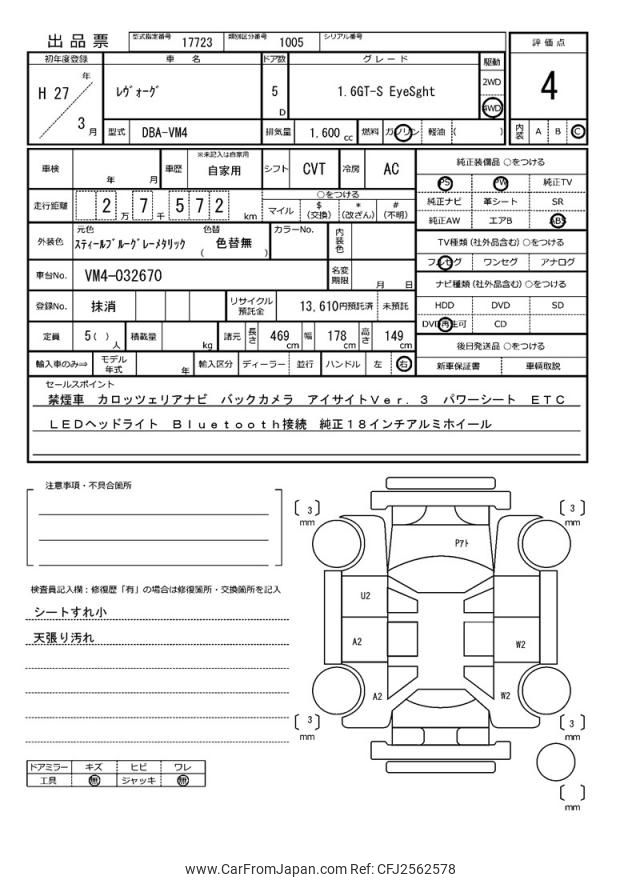 出品票 型式指定番号 17723 類別区分番号 1005 シリアル番号
評価点
4
内装 A B C
初年度登録 車名 ドア数 グレード 駆動
H 27 年 レヴォーグ 5 D 1.6GT-S EyeSght 2WD
4WD
3 月 型式 DBA-VM4 排気量 1.600 cc 燃料 ガソリン 軽油 ( )
車検 年 月 車歴 ※未記入は自家用 自家用 シフト CVT 冷房 AC
走行距離 2 万 7 千 5 7 2 km ○をつける
マイル $ (交換) * (改ざん) # (不明)
外装色 元色 スティールブルーグレーメタリック 色替 ( 色替無 ) カラーNo. 内装色
車台No. VM4-032670 名変期限 月 日
登録No. 抹消 リサイクル預託金 13,610円預託済 未預託
定員 5( ) 人 積載量 kg 諸元 長さ 469 cm 幅 178 cm 高さ 149 cm
輸入車のみ⇒ モデル年式 年 輸入区分 ディーラー 並行 ハンドル 左 右
純正装備品 ○をつける
PS PW 純正TV
純正ナビ 革シート SR
純正AW エアB ABS
TV種類 (社外品含む) ○をつける
フルセグ ワンセグ アナログ
ナビ種類 (社外品含む) ○をつける
HDD DVD SD
DVD再生可 CD
後日発送品 ○をつける
新車保証書 車輌取説
セールスポイント
禁煙車 カロッツェリアナビ バックカメラ アイサイトVer.3 パワーシート ETC
LEDヘッドライト Bluetooth接続 純正18インチアルミホイール
注意事項・不具合箇所
検査員記入欄:修復歴「有」の場合は修復箇所・交換箇所を記入
シートすれ小
天張り汚れ
ドアミラー キズ ヒビ ワレ
工具 無 ジャッキ 無
3 mm
3 mm
Pアト
U2
A2 W2
A2 W2
3 mm
3 mm
mm
www.CarFromJapan.com Ref: CFJ2562578